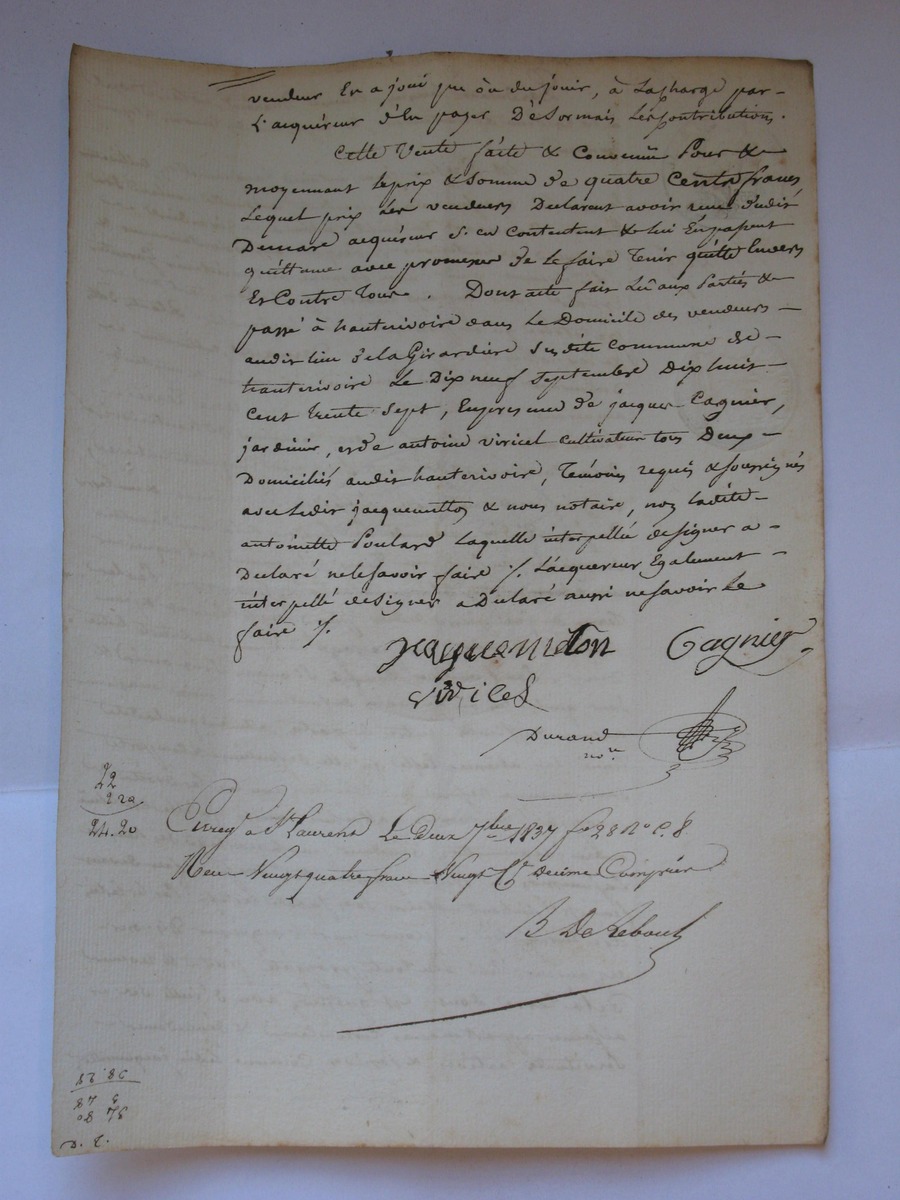 vendeur Er a joui que ou du jour, à Lacharge par-
L'acquéreur d'En payer Désormais Les Contributions.
Cette Vente faite & Convenüe Pour &
moyennant Le prix & Somme de quatre Cents francs
Lequel prix Les vendeurs Declarent avoir reçu dudit
Demare acquéreur S'en Contentent & lui En passent
quittance avec promesse de Le faire Tenir quitte Envers
Et Contre Tous. Dont acte fait Lû aux Parties &
passé à hauterivoire dans Le Domicile des vendeurs-
audit lieu de la Girardière Susdite Commune de-
hauterivoire Le Dix neuf Septembre Dix huit-
Cent trente Sept, En presence de jacques Cagnier,
jardinier, et de antoine viricel cultivateur tous Deux-
Domiciliés audit hauterivoire, Témoins requis & soussignés
avec Ledit jacquemetton & nous notaire, non ladite-
antoinette Poulard Laquelle interpellée de signer a-
Declaré ne le savoir faire %. L'acquereur Egalement-
interpellé de Signer a Declaré aussi ne savoir Le
faire %.
jacquemetton Cagnier
viricel
Durand
no.re
22
2 20
24.20
Enreg.é à St Laurent Le Deux 7bre 1837 fo 28 Ro C. 8.
Reçu Vingt quatre francs Vingt Ct Decime Compris
B De Reboul